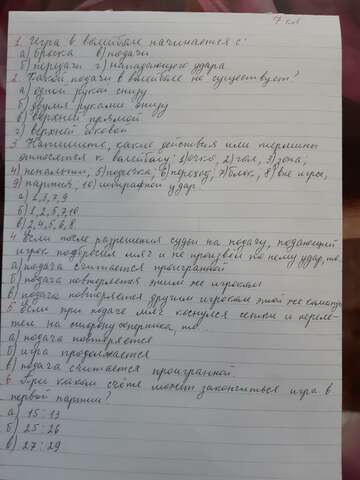 7 кл
1. Игра в волейболе начинается с:
а) броска в) подачи
б) передачи г) нападающего удара
2. Какой подачи в волейболе не существует?
а) одной рукой снизу
б) двумя руками снизу
в) верхней прямой
г) верхней боковой
3. Напишите, какие действия или термины
относятся к волейболу: 1) очко, 2) гол, 3) зона,
4) пенальти, 5) подсечка, 6) переход, 7) блок, 8) вне игры,
9) партия, 10) штрафной удар.
а) 1, 3, 7, 9
б) 1, 2, 5, 7, 10
в) 2, 4, 5, 6, 8
4. Если после разрешения судьи на подачу, подающий
игрок подбросил мяч и не произвёл по нему удар, то...
а) подача считается проигранной
б) подача повторяется этим же игроком
в) подача повторяется другим игроком этой же команды
5. Если при подаче мяч коснулся сетки и переле-
тел на сторону соперника, то...
а) подача повторяется
б) игра продолжается
в) подача считается проигранной.
6. При каком счёте может закончиться игра в
первой партии?
а) 15:13
б) 25:26
в) 27:29